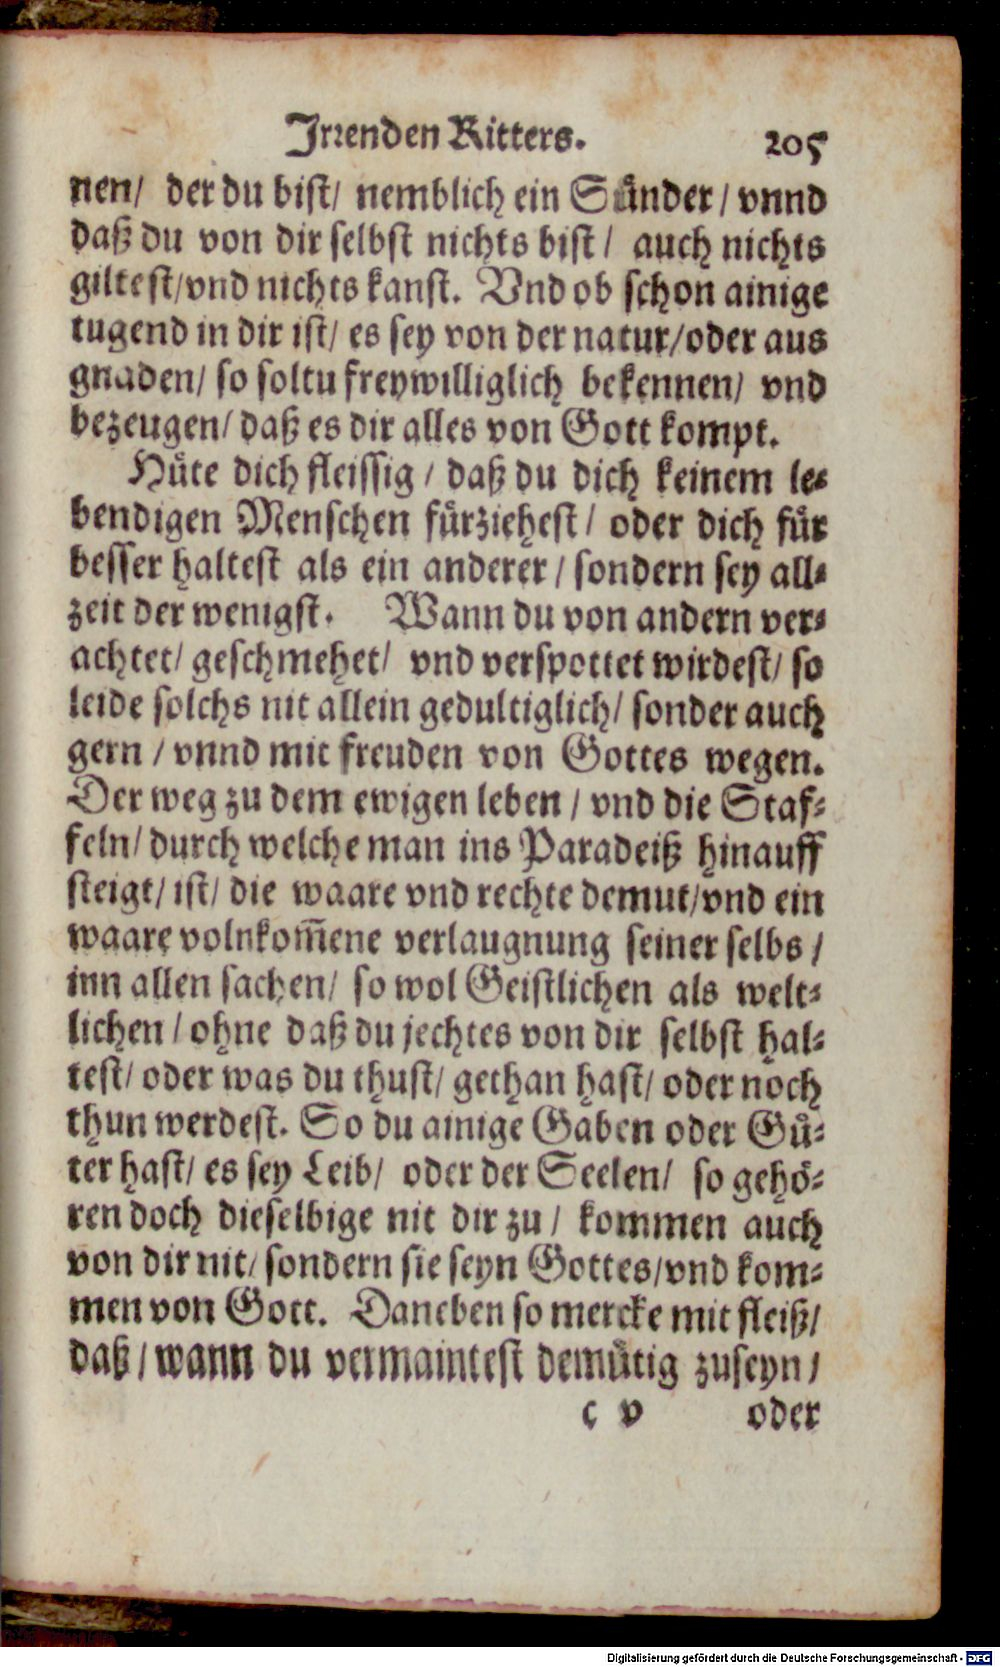 Irrenden Ritters. 205
nen/ der du bist/ nemblich ein Sünder/ vnnd
daß du von dir selbst nichts bist/ auch nichts
giltest/vnd nichts kanst. Vnd ob schon ainige
tugend in dir ist/ es sey von der natur/oder aus
gnaden/ so soltu freywilliglich bekennen/ vnd
bezeugen/ daß es dir alles von Gott kompt.
Hüte dich fleissig/ daß du dich keinem le⸗
bendigen Menschen fürziehest/ oder dich für
besser haltest als ein anderer/ sondern sey all⸗
zeit der wenigst. Wann du von andern ver⸗
achtet/ geschmehet/ vnd verspottet wirdest/ so
leide solchs nit allein gedultiglich/ sonder auch
gern/ vnnd mit freuden von Gottes wegen.
Der weg zu dem ewigen leben/ vnd die Staf⸗
feln/ durch welche man ins Paradeiß hinauff
steigt/ ist/ die waare vnd rechte demut/vnd ein
waare volnkom̅ene verlaugnung seiner selbs/
inn allen sachen/ so wol Geistlichen als welt⸗
lichen/ ohne daß du jechtes von dir selbst hal⸗
test/ oder was du thust/ gethan hast/ oder noch
thun werdest. So du ainige Gaben oder Gü⸗
ter hast/ es sey Leib/ oder der Seelen/ so gehö⸗
ren doch dieselbige nit dir zu/ kommen auch
von dir nit/ sondern sie seyn Gottes/vnd kom⸗
men von Gott. Daneben so mercke mit fleiß/
daß/ wann du vermaintest demütig zuseyn/
c v oder
Digitalisierung gefördert durch die Deutsche Forschungsgemeinschaft - DFG